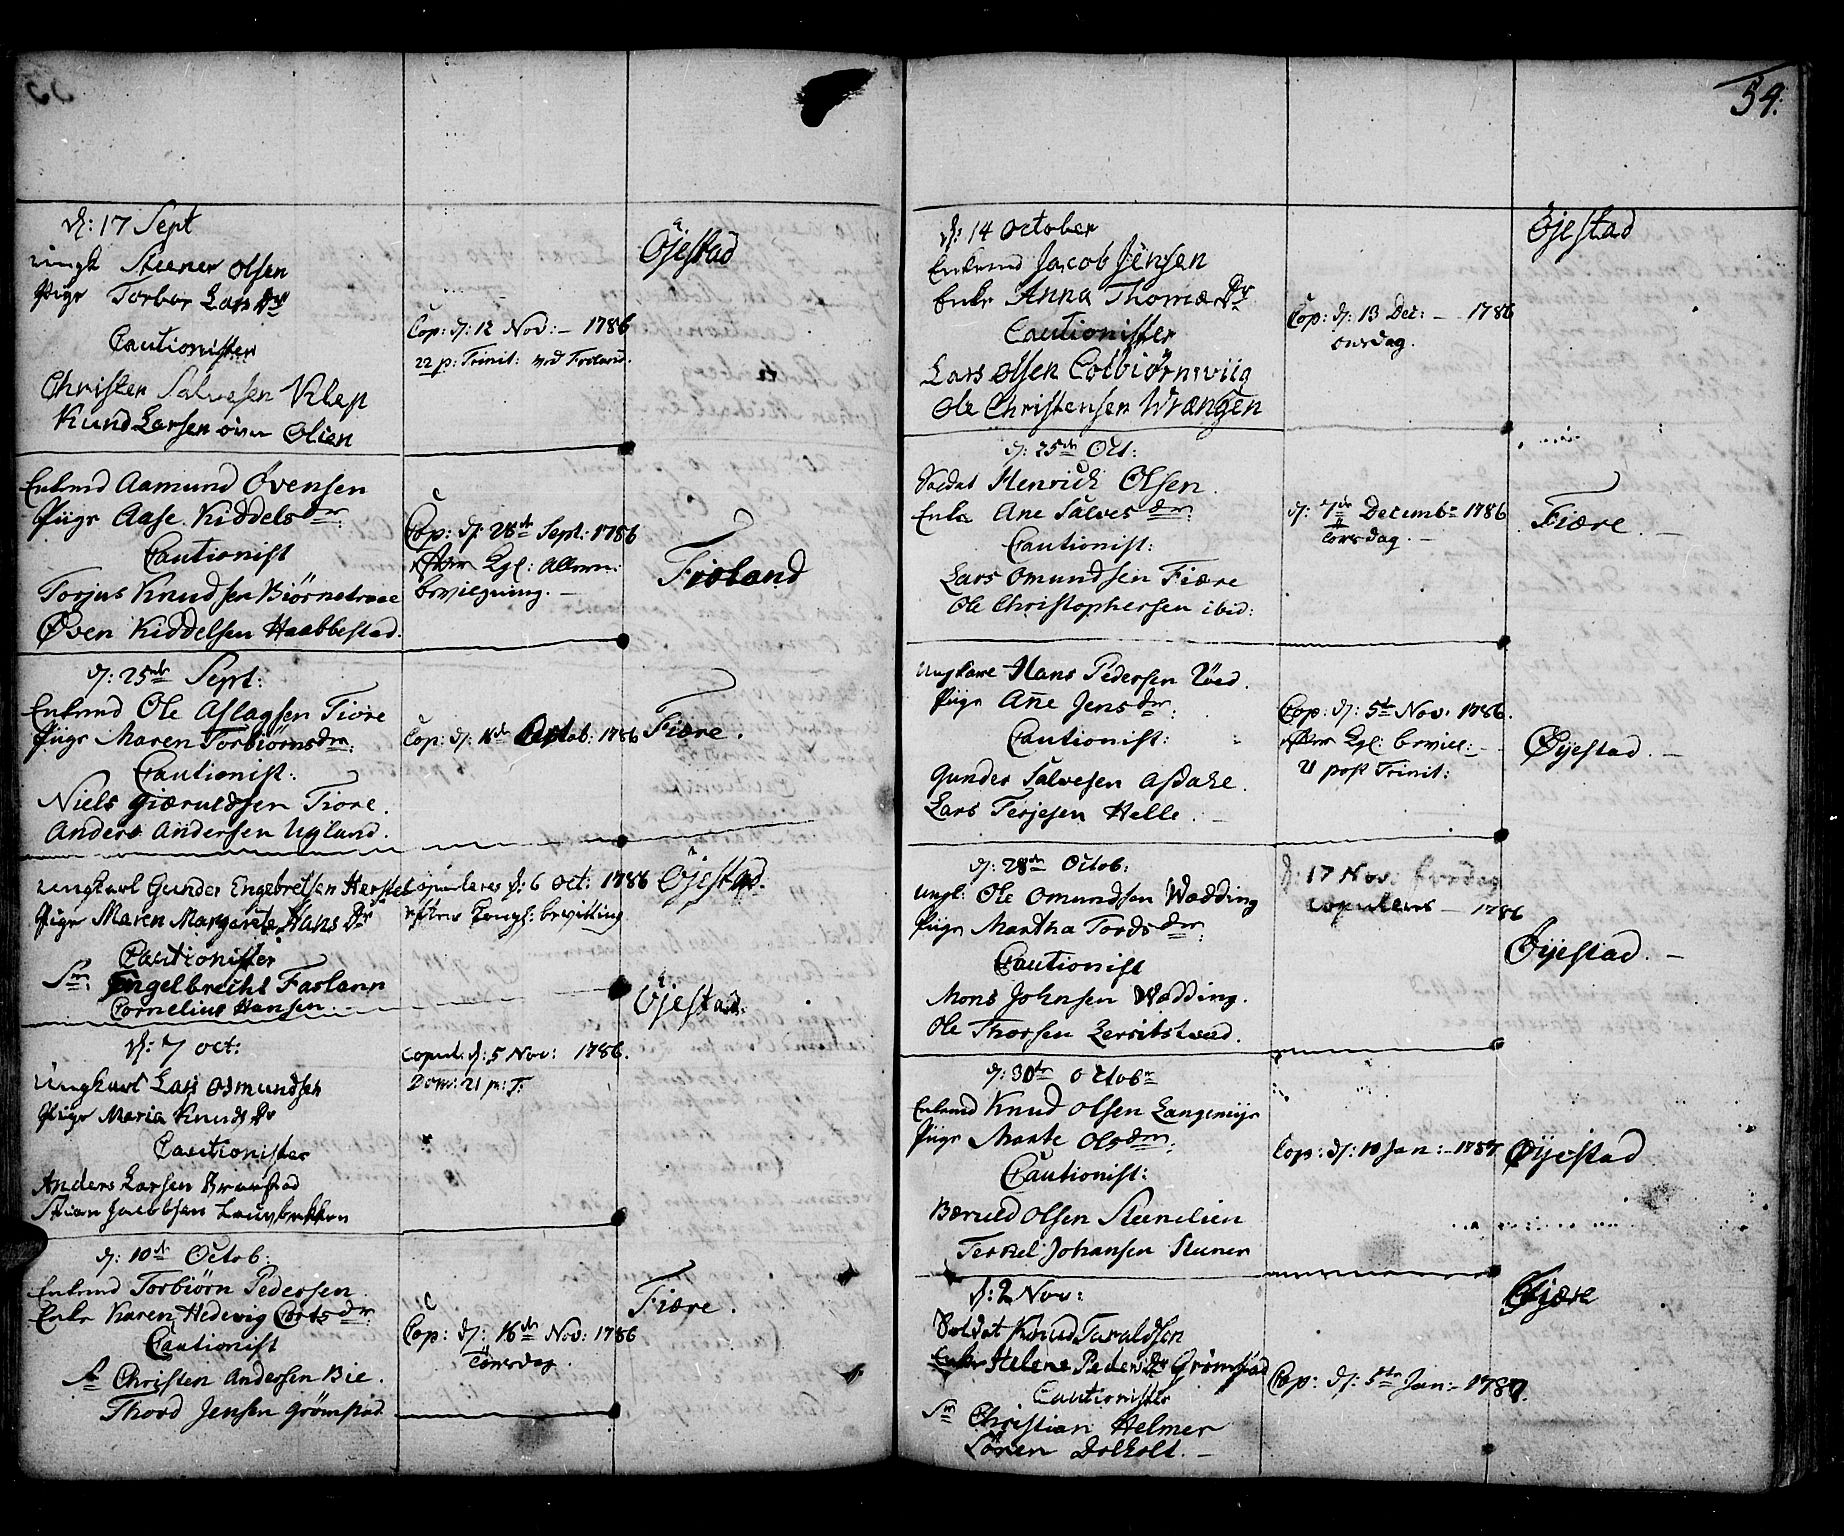 54.
d: 17 Sept
Ungk Steener Olsen
Pige Torbor Lars Dr
Cautionister
Christen Salvesen Klep
Knud Larsen Olien
Cop: d: 12 Nov: – 1786
22 p: Trinit: ved Froland.
Øjestad
Enkemd Aamund Øvensen
Pige Aase Kiddelsdtr
Cautionist
Torjus Knudsen Biørnetrae
Øven Kiddelsen Haabbestad.
Cop: d: 28de Sept: 1786
efter Kgl: Allern:
bevilgning. –
Froland
d: 25de Sept:
Enkemd Ole Aslagsen Fiøre
Pige Maren Torbiørnsdtr:
Cautionist:
Niels Giæruldsen Fiøre.
Anders Andersen Ugland.
Cop: d: 16de Octob: 1786
Fiære.
Ungkarl Gunder Engebretsen Herstel
Pige Maren Margareta Hans Dr
Cautionister
Sr. Engelbrecht Faslann
Cornelius Hansen
copuleres d: 6 Oct: 1786
efter Kongl: bevilling
Øjestad.
d: 7 Oct:
Ungkarl Lars Osmundsen
Pige Maria Knuds Dr
Cautionister
Anders Larsen
Stian Jacobsen Lauvbrekken
copul: d: 5 Nov: 1786.
Dom: 21 p: T.
Øjestad.
d: 10de Octob:
Enkemd Torbiørn Pedersen.
Enke Karen Hedevig Cortsdtr:
Cautionist
Sr Christen Andersen Bie.
Thord Jensen Grømstad
Cop: d: 16de Nov: 1786
Torsdag.
Fiære.
d: 14 October
Enkemd Jacob Jensen
Enke Anna Thomæ Dr
Cautionister
Lars Olsen Colbiørnsviig
Ole Christensen Wrængen
Cop: d: 13 Dec: – 1786
onsdag.
Øjestad
d: 25de Oct:
Soldat Henrich Olsen.
Enke Ane Salvesdtr:
Cautionist:
Lars Omundsen Fiære
Ole Christophersen ibid:
d: 7de Decemb: 1786
torsdag. –
Fiære. –
Ungkare Hans Pedersen
Pige Añe Jensdtr:
Cautionist:
Gunder Salvesen Assake.
Lars Terjesen Helle. –
Cop: d: 5te Nov: 1786.
efter Kgl: bevill: –
21 post Trinit:
Øyestad. –
d: 28de Octob:
Ungk: Ole Omundsen Wædding
Pige Martha Tordsdtr:
Cautionist
Mons Johnsen Wædding.
Ole Thorsen Lersitstved.
d: 17 Nov: fredag
copuleres – 1786
Øyestad. –
d: 30te Octobr
Enkemd Knud Olsen Langemyr
Pige Marte Olsdtr:
Cautionist:
Bæruld Olsen Steenelien
Terkel Johansen Steener
Cop: d: 10 Jan: – 1787
Øyestad
d: 2 Nov:
Soldat Knud Taraldsen
Enke Helene Peders Dr Grømstad
Cautionister
Sr Christian Helmer
Søren Dolholt. –
Cop: d: 5te Jan: – 1787.
Fjære